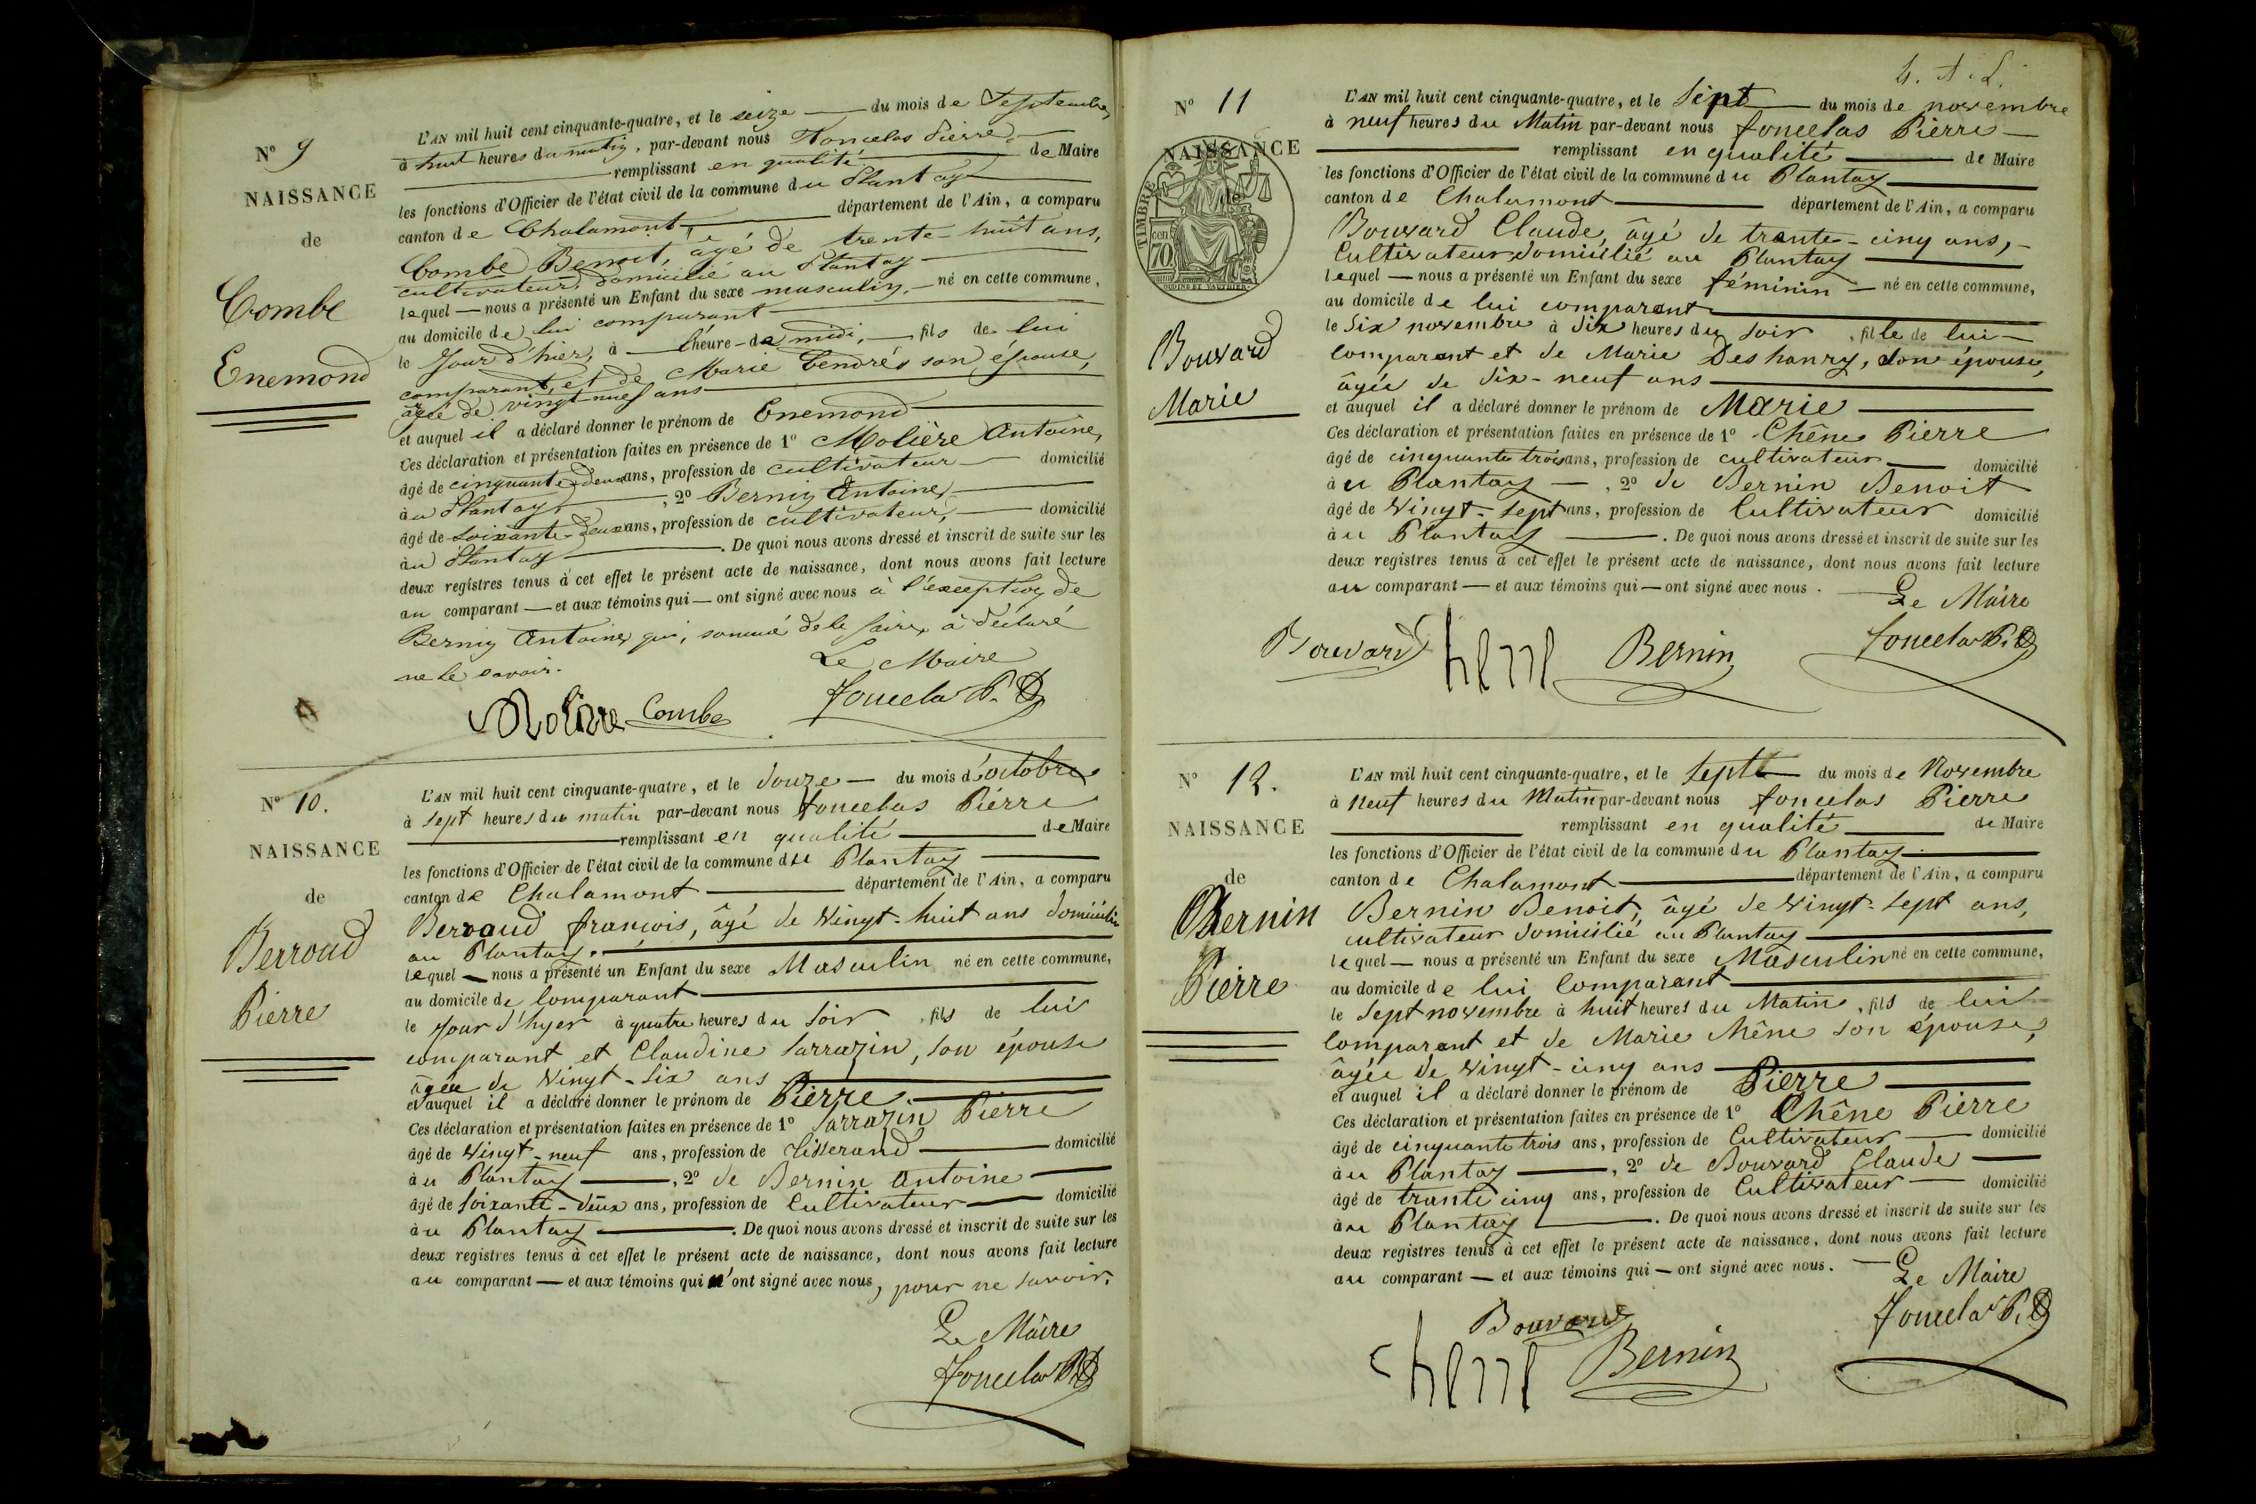 N° 9
NAISSANCE
de
Combe
Enemond
L'AN mil huit cent cinquante-quatre, et le seize du mois de Septembre,
à huit heures du matin, par-devant nous Foncelas Pierre
remplissant en qualité de Maire
les fonctions d'Officier de l'état civil de la commune du Plantay
canton de Chalamont, département de l'Ain, a comparu
Combe Benoit, âgé de trente-huit ans,
cultivateur, domicilié au Plantay
lequel nous a présenté un Enfant du sexe masculin, né en cette commune,
au domicile de lui comparant
le Jour d'hier, à l'heure de midi, fils de lui
comparant, et de Marie son épouse,
âgée de vingt-neuf ans
et auquel il a déclaré donner le prénom de Enemond
Ces déclaration et présentation faites en présence de 1° Molière Antoine,
âgé de cinquante-deux ans, profession de cultivateur domicilié
au Plantay, 2° Bernin Antoine,
âgé de soixante-deux ans, profession de cultivateur, domicilié
au Plantay. De quoi nous avons dressé et inscrit de suite sur les
deux registres tenus à cet effet le présent acte de naissance, dont nous avons fait lecture
au comparant et aux témoins qui ont signé avec nous à l'exception de
Bernin Antoine, qui, sommé de le faire, à déclaré
ne le savoir.
Le Maire
Molière Combe Foncelas P.
N° 10.
NAISSANCE
de
Berroud
Pierre
L'AN mil huit cent cinquante-quatre, et le douze du mois d'octobre
à sept heures du matin par-devant nous foncelas Pierre
remplissant en qualité de Maire
les fonctions d'Officier de l'état civil de la commune du Plantay
canton de Chalamont département de l'Ain, a comparu
Berroud françois, âgé de vingt-huit ans domicilié
au Plantay.
lequel nous a présenté un Enfant du sexe Masculin né en cette commune,
au domicile de Comparant
le Jour d'hyer à quatre heures du Soir, fils de lui
comparant et Claudine Sarrazin, son épouse
âgée de vingt-six ans
et auquel il a déclaré donner le prénom de Pierre
Ces déclaration et présentation faites en présence de 1° Sarrazin Pierre
âgé de vingt-neuf ans, profession de tisserand domicilié
au Plantay, 2° de Bernin Antoine
âgé de soixante-deux ans, profession de Cultivateur domicilié
au Plantay. De quoi nous avons dressé et inscrit de suite sur les
deux registres tenus à cet effet le présent acte de naissance, dont nous avons fait lecture
au comparant et aux témoins qui n'ont signé avec nous, pour ne savoir.
Le Maire
Foncelas P.
N° 11
NAISSANCE
de
TIMBRE
cen
70
Bouvard
Marie
L'AN mil huit cent cinquante-quatre, et le Sept du mois de novembre
à neuf heures du Matin par-devant nous foncelas Pierre
remplissant en qualité de Maire
les fonctions d'Officier de l'état civil de la commune du Plantay
canton de Chalamont département de l'Ain, a comparu
Bouvard Claude, âgé de trente-cinq ans,
Cultivateur domicilié au Plantay
lequel nous a présenté un Enfant du sexe féminin né en cette commune,
au domicile de lui comparant
le Six novembre à dix heures du soir, fille de lui
comparant et de Marie Deshanry, son épouse,
âgée de dix-neuf ans
et auquel il a déclaré donner le prénom de Marie
Ces déclaration et présentation faites en présence de 1° Chêne Pierre
âgé de cinquante trois ans, profession de cultivateur domicilié
au Plantay, 2° de Bernin Benoit
âgé de vingt-sept ans, profession de Cultivateur domicilié
au Plantay. De quoi nous avons dressé et inscrit de suite sur les
deux registres tenus à cet effet le présent acte de naissance, dont nous avons fait lecture
au comparant et aux témoins qui ont signé avec nous.
Le Maire
Bouvard Bernin Foncelas P.
N° 12.
NAISSANCE
de
Bernin
Pierre
L'AN mil huit cent cinquante-quatre, et le sept du mois de Novembre
à Neuf heures du Matin par-devant nous foncelas Pierre
remplissant en qualité de Maire
les fonctions d'Officier de l'état civil de la commune du Plantay
canton de Chalamont département de l'Ain, a comparu
Bernin Benoit, âgé de vingt-sept ans,
cultivateur domicilié au Plantay
lequel nous a présenté un Enfant du sexe Masculin né en cette commune,
au domicile de lui Comparant
le Sept novembre à huit heures du Matin, fils de lui
Comparant et de Marie Chêne son épouse,
âgée de vingt-cinq ans
et auquel il a déclaré donner le prénom de Pierre
Ces déclaration et présentation faites en présence de 1° Chêne Pierre
âgé de cinquante trois ans, profession de Cultivateur domicilié
au Plantay, 2° de Bouvard Claude
âgé de trante cinq ans, profession de Cultivateur domicilié
au Plantay. De quoi nous avons dressé et inscrit de suite sur les
deux registres tenus à cet effet le présent acte de naissance, dont nous avons fait lecture
au comparant et aux témoins qui ont signé avec nous.
Le Maire
Bouvard
Bernin Foncelas P.